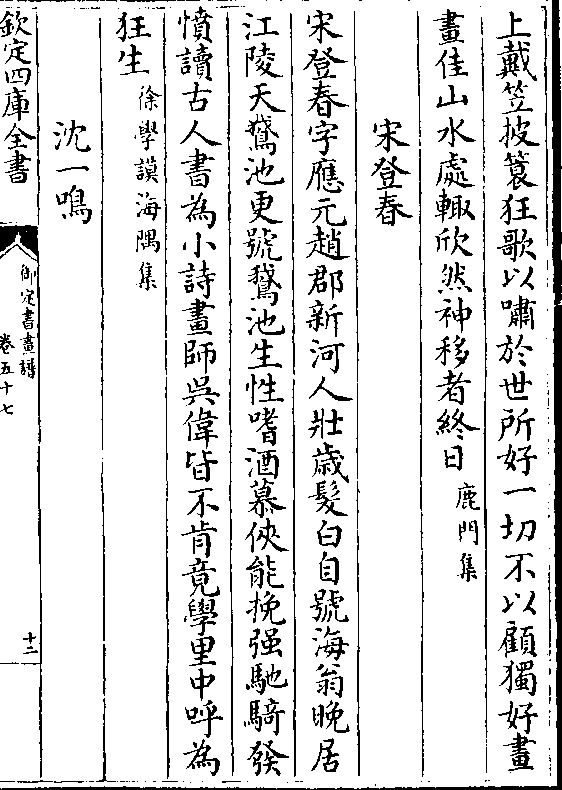 上戴笠披簑狂歌以嘯於世所好一切不以顧獨好畫
畫佳山水處輙欣然神移者終日鹿門集
宋登春
宋登春字應元趙郡新河人壯歲髮白自號海翁晚居
江陵天鵞池更號鵞池生性嗜酒慕俠能挽强馳騎發
憤讀古人書為小詩畫師吳偉皆不肯竟學里中呼為
狂生徐學謨海隅集
沈一鳴
欽定四庫全書
御定書畫譜
卷五十七
十二